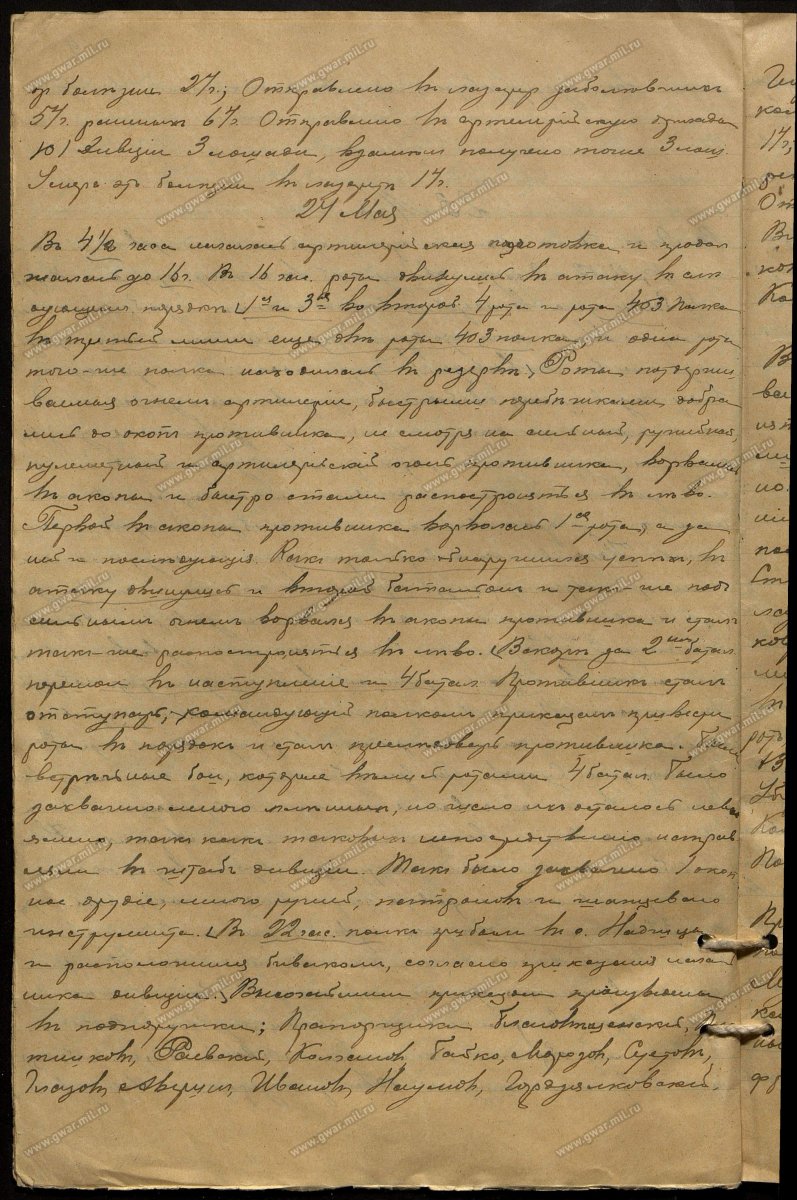 болѣзни 2 ч.; Отправлено въ лазаретъ заболѣвшихъ
5 ч. раненыхъ 6 ч. Отправлено въ артилерійскую бригаду
101 дивизіи 3 лошади, взамѣнъ получено тоже 3 лош.
Умеръ отъ болѣзни въ лазаретѣ 1 ч.
24 Мая
Въ 4 1/2 часа началась артилерійская подготовка и продол
жалась до 16 ч. Въ 16 час. роты двинулись въ атаку въ слѣ
дующемъ порядкѣ 1ая и 3ая во второй 4 рота и рота 403 полка
въ третьей линіи еще двѣ роты 403 полка и одна рота
того-же полка находилась въ резервѣ. Роты поддержи
ваемыя огнемъ артилеріи, быстрыми перебѣжками добра
лись до окопъ противника, не смотря на сильный, ружейный,
пулеметный и артилерійскій огонь противника, ворвались
въ окопы и быстро стали распостроняться въ лѣво.
Первой въ окопы противника ворвалась 1ая рота, а за
ней и послѣдующія. Какъ только обнаружился успѣхъ, въ
атаку двинулся и второй баталіонъ и такъ-же подъ
сильнымъ огнемъ ворвался въ окопы противника и сталъ
такъ-же распостроняться въ лѣво. за 2мъ батал
перешли въ наступленіе и 4 батал. Противникъ сталъ
отступать, командующій полкомъ приказалъ привести
роты въ порядокъ и сталъ преслѣдовать противника. Были
встрѣчные бои, которые вѣлись ротами 4 батал. Было
захвачено много плѣнныхъ, но число ихъ осталось невы
яснено, такъ какъ таковыхъ непосредственно направ
ляли въ штабъ дивизіи. Такъ было захвачено 1 окоп
ное орудіе, много ружей, патроновъ и шанцеваго
инструмента. Въ 22 час. полкъ прибылъ въ
и расположился бивакомъ, согласно приказанія началь
ника дивизіи. Высочайшимъ приказомъ произведены
въ подпоручики; Прапорщики Благовѣщенскій,
Раевскій, Байко, Морозовъ,
Глазовъ, Ивановъ, Наумовъ,